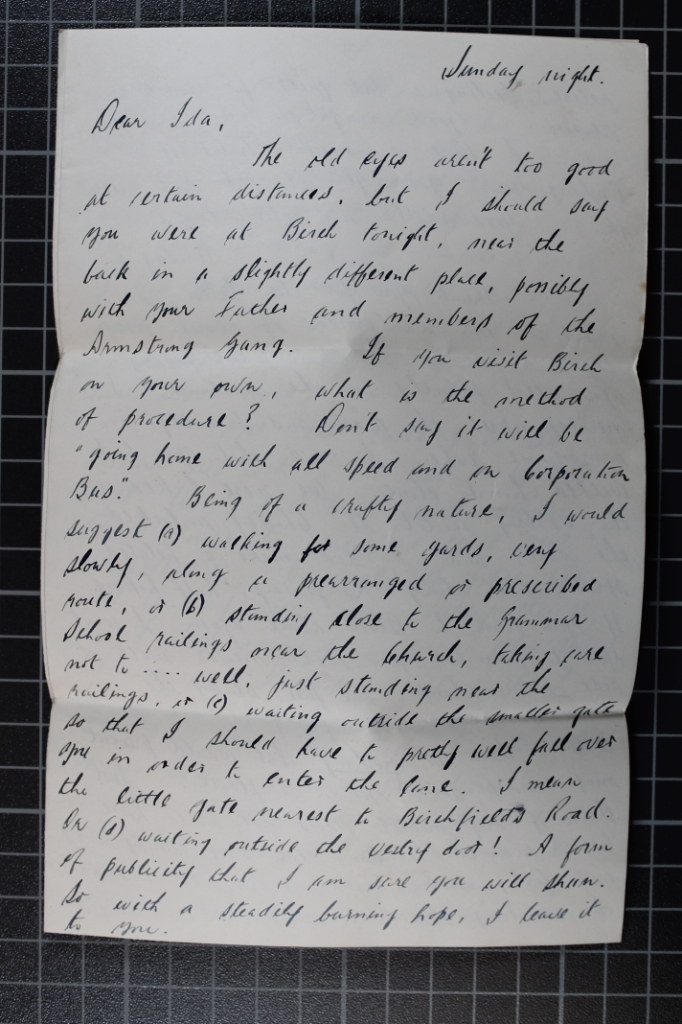 Sunday night.
Dear Ida,
The old eyes aren't too good
at certain distances, but I should say
you were at Birch tonight, near the
back in a slightly different place, possibly
with your Father and members of the
Armstrong Gang. If you visit Birch
on your own, what is the method
of procedure? Don't say it will be
"going home with all speed and on Corporation
Bus." Being of a crafty nature, I would
suggest (a) walking for some yards, very
slowly, along a prearranged or prescribed
route, or (b) standing close to the Grammar
School railings near the Church, taking care
not to .... well, just standing near the
railings, or (c) waiting outside the smaller gate
so that I should have to pretty well fall over
you in order to enter the lane. I mean
the little gate nearest to Birchfields Road.
Or (d) waiting outside the vestry door! A form
of publicity that I am sure you will shun.
So with a steadily burning hope, I leave it
to you.